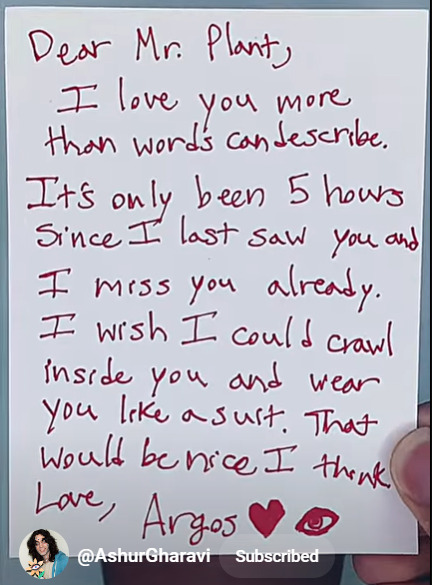 Dear Mr. Plant,
I love you more
than words can describe.
It's only been 5 hours
Since I last saw you and
I miss you already.
I wish I could crawl
inside you and wear
you like a suit. That
would be nice I think
Love,
Argos
@AshurGharavi Subscribed